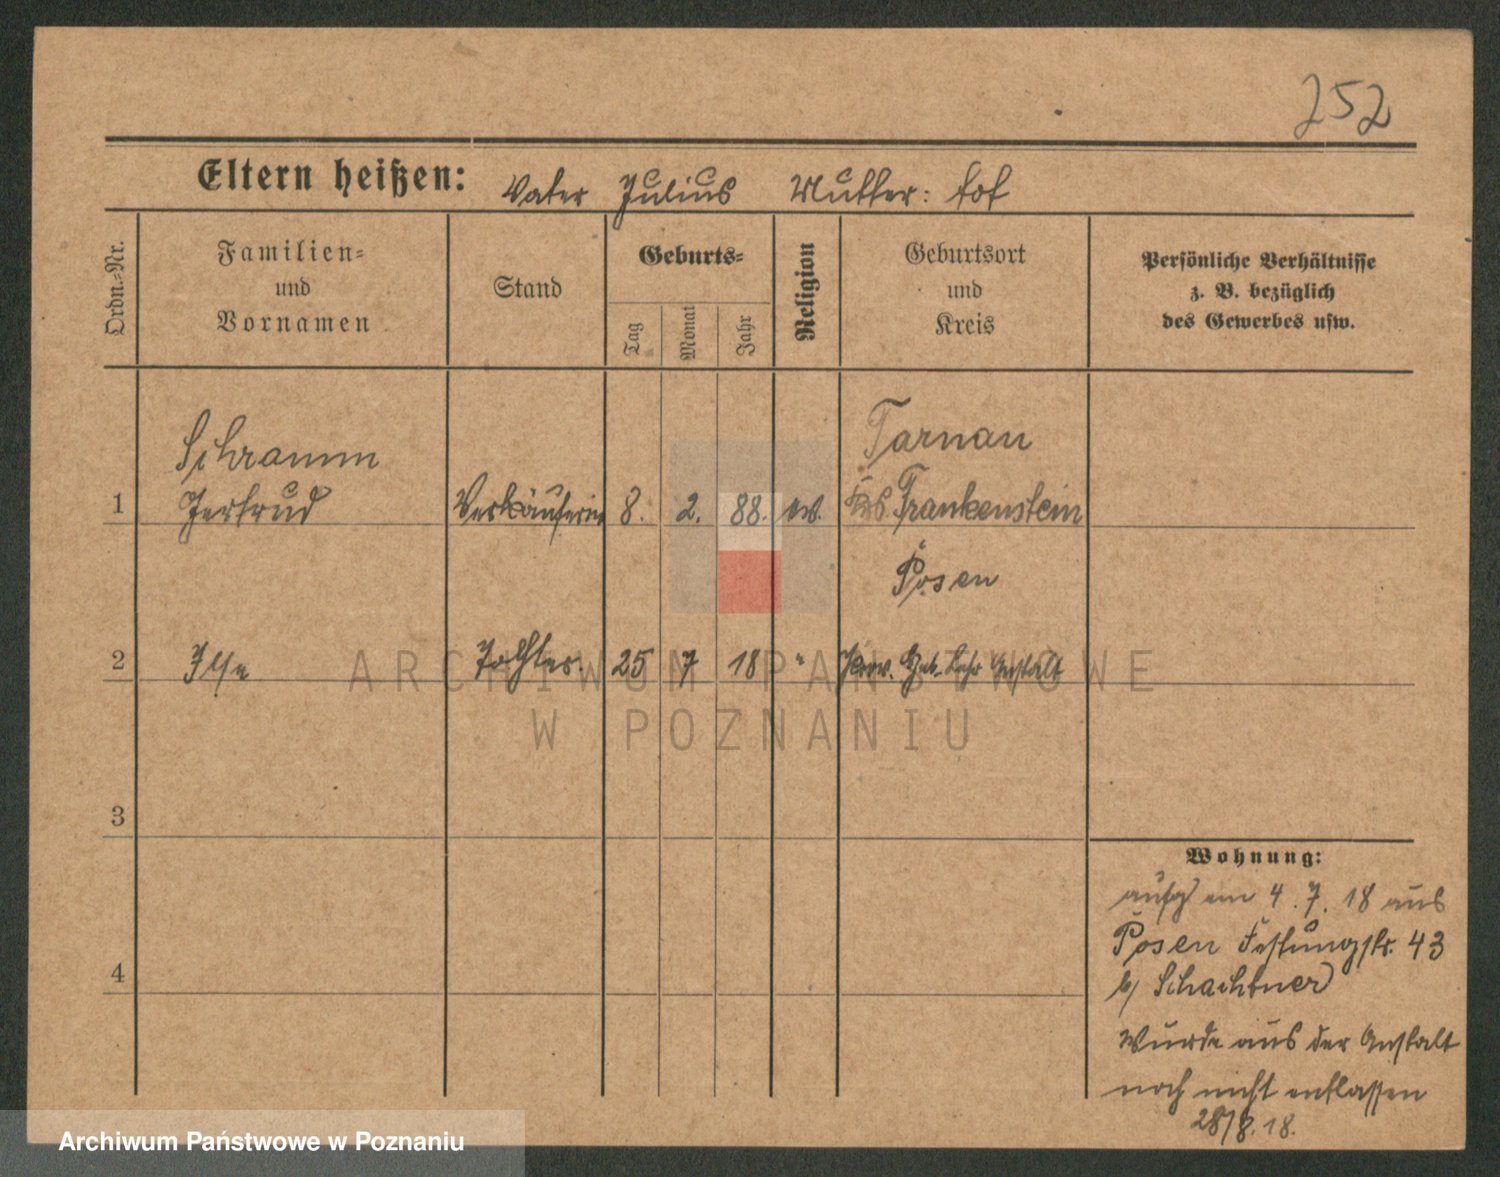 252
Eltern heißen: Vater Julius Mutter: tot
Ordn.-Nr.
Familien-
und
Vornamen
Stand
Geburts-
Tag
Monat
Jahr
Religion
Geburtsort
und
Kreis
Persönliche Verhältnisse
z. B. bezüglich
des Gewerbes usw.
Schramm
Tarnau
1 Gertrud Verkäuferin 8. 2. 88. ev. Krs. Frankenstein
Posen
2 Ilse Tochter. 25 7 18 " Prov. Heb. Lehr Anstalt
3
4
Wohnung:
aufg am 4. 7. 18 aus
Posen Festungstr. 43
b/ Schachtner
Wurde aus der Anstalt
noch nicht entlassen
28/8.18.
ARCHIWUM PAŃSTWOWE
W POZNANIU
Archiwum Państwowe w Poznaniu